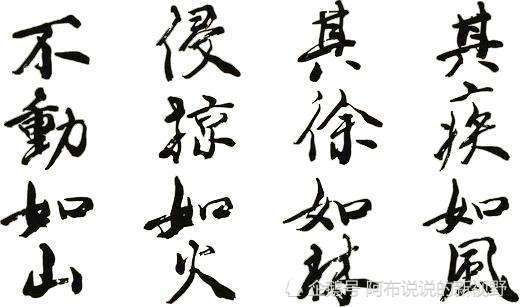 其疾如風
其徐如林
侵掠如火
不動如山
企鹅号 阿布说说的视野